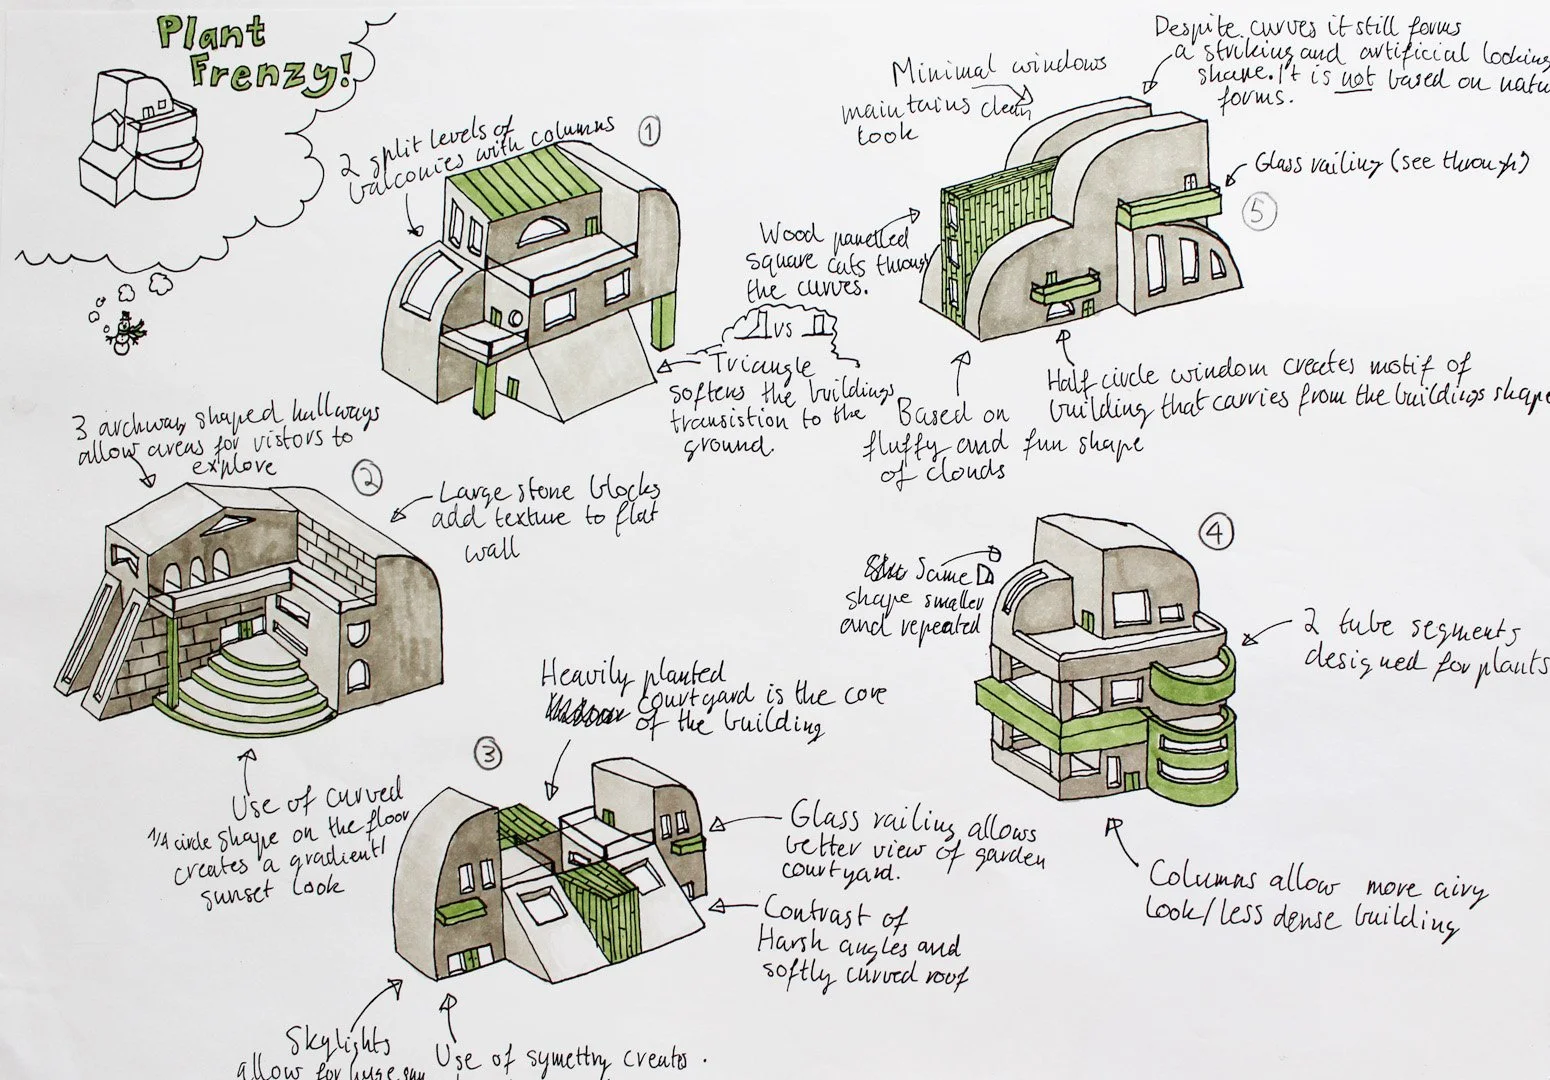 Plant
Frenzy!
2 split levels of
balconies with columns
1
Minimal windows
maintains clean
look
Despite curves it still forms
a striking and artificial looking
shape. It is not based on natu
forms.
Glass railing (see through)
5
Wood panelled
square cuts through
the curves.
VS
Triangle
softens the buildings
transistion to the
ground.
Based on
fluffy and fun shape
of clouds
Half circle window creates motif of
building that carries from the buildings shape
3 archway shaped hallways
allow areas for vistors to
explore
2
Large stone blocks
add texture to flat
wall
Use of curved
1/4 circle shape on the floor
creates a gradient/
sunset look
Heavily planted
courtyard is the core
of the building
3
Glass railing allows
better view of garden
courtyard.
Contrast of
Harsh angles and
softly curved roof
Skylights
allow for huge
Use of symettry creates
4
Same D
shape smaller
and repeated
2 tube segments
designed for plants
Columns allow more airy
look/less dense building